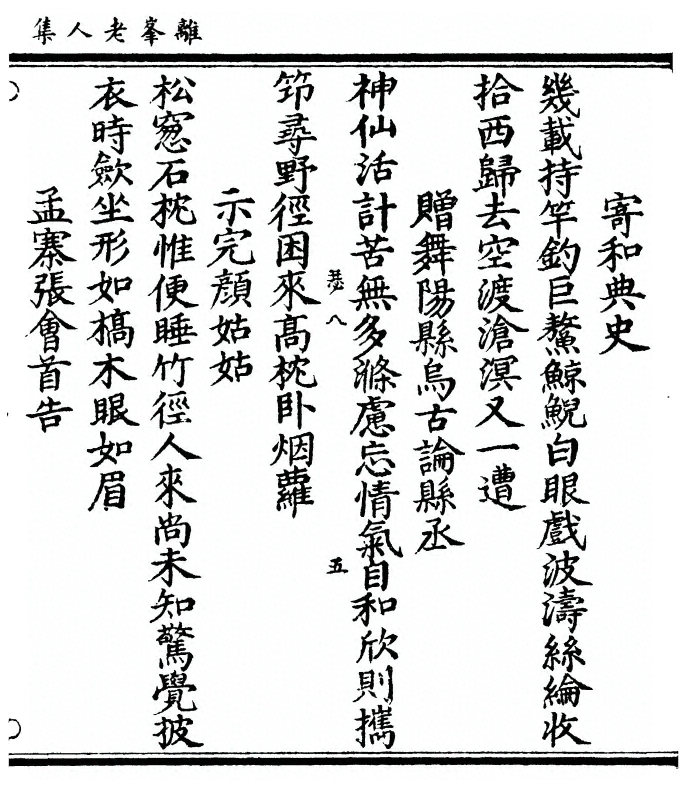 離峯老人集
寄和典史
幾載持竿釣巨鰲鯨鯢白眼戲波濤絲綸收
拾西歸去空渡滄溟又一遭
贈舞陽縣烏古論縣丞
神仙活計苦無多滌慮忘情氣自和欣則攜
八
五
笻尋野徑困來高枕卧烟蘿
示完顔姑姑
松窓石枕惟便睡竹徑人來尚未知驚覺披
衣時歛坐形如槁木眼如眉
孟寨張會首告